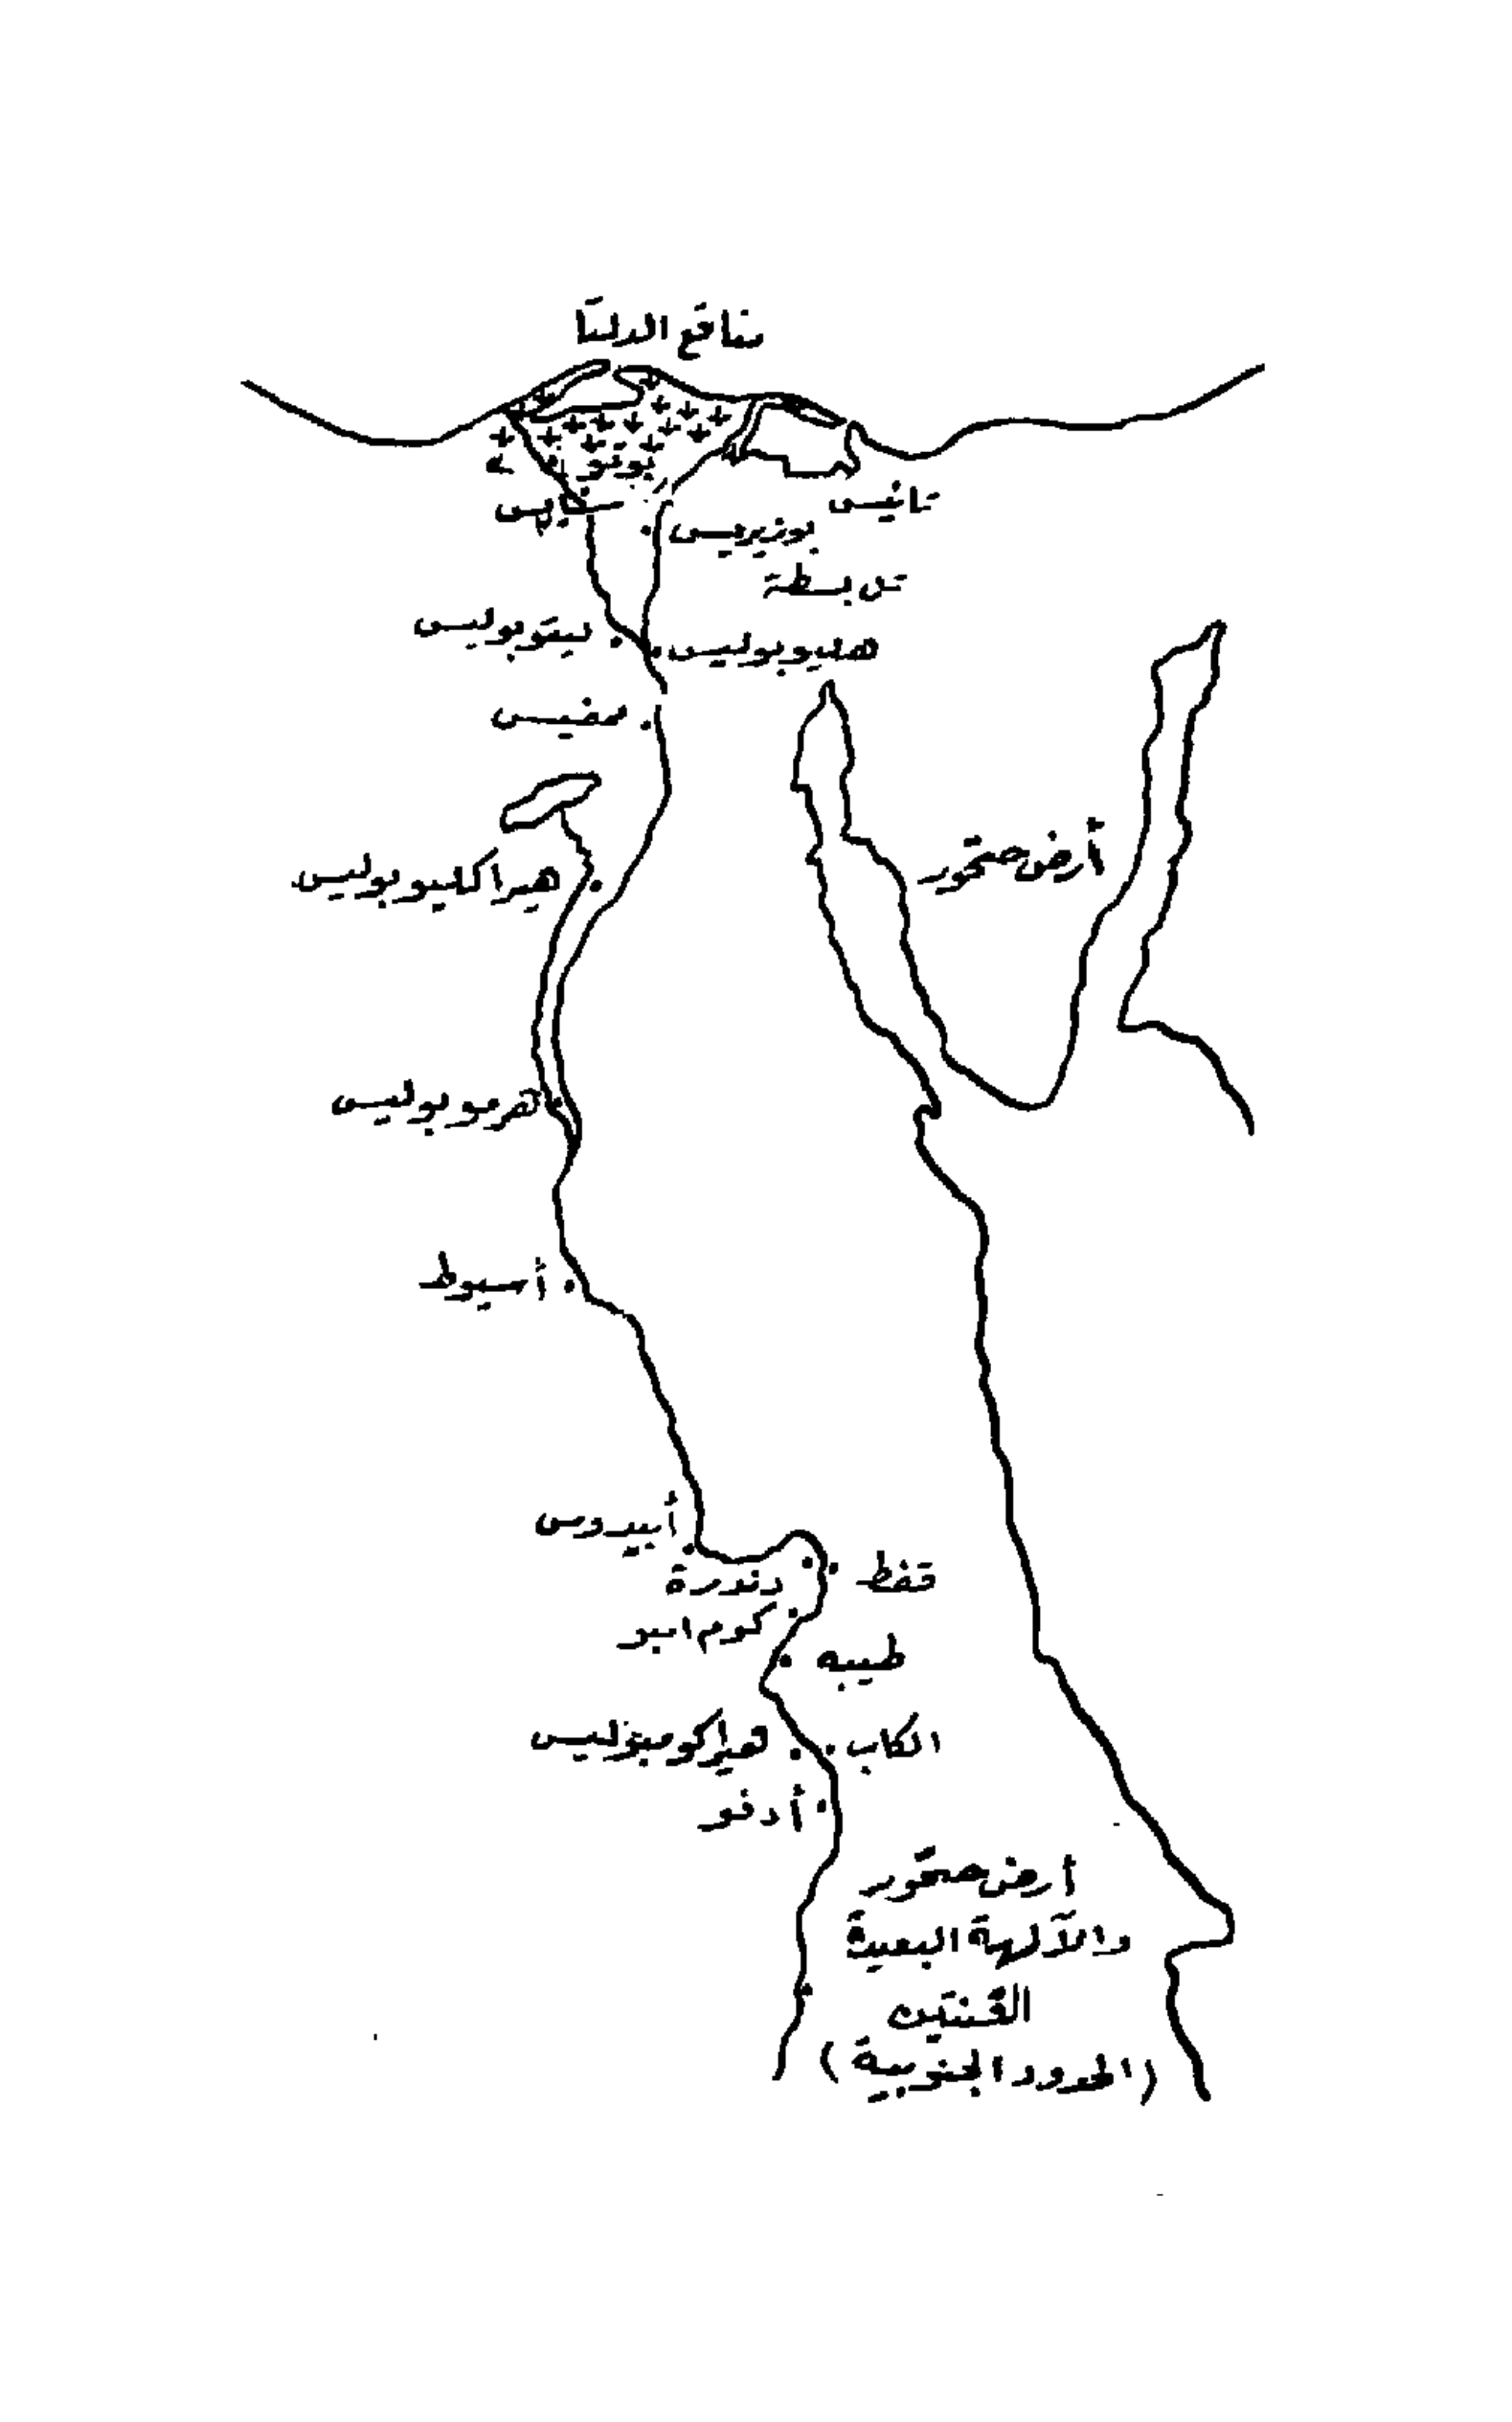 مناقع الدلتا
بوتو
سايس
تانيس
بوزيريس
تل بسطة
ليتوبوليس
هليوبوليس
ممفيس
أرض حتحور
هيراكليوبوليس
هرموبوليس
أسيوط
أبيدوس
دندرة
قفط
كوم امبو
طيبه
هيراكومبوليس
الكاب
أدفو
أرض حتحور
والآلهة البعيدة
الفنتين
(الحدود الجنوبية)